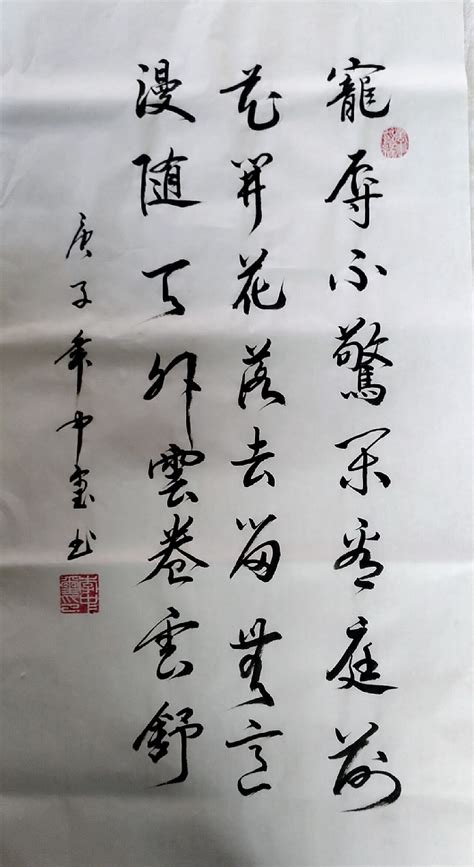 寵辱不驚閑看庭前
花開花落去留無意
漫随天外雲卷雲舒
庚子年中